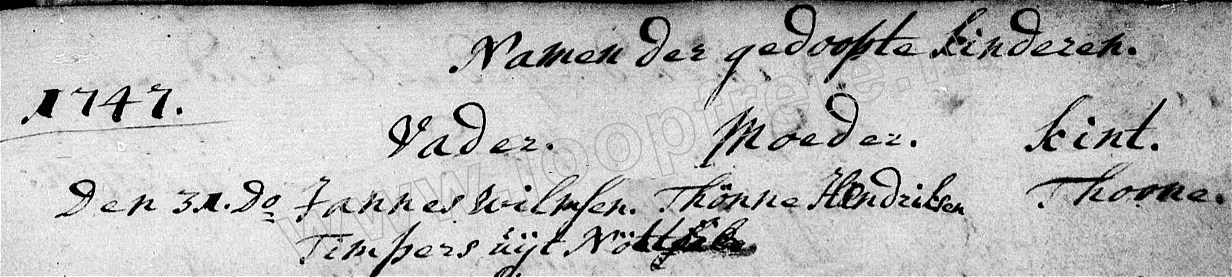 Namen der gedoopte kinderen.
1747.
Vader. Moeder. kint.
Den 31. Do Jannes Wilmsen. Thönne Hendriksen Thoone.
Timpers üÿt